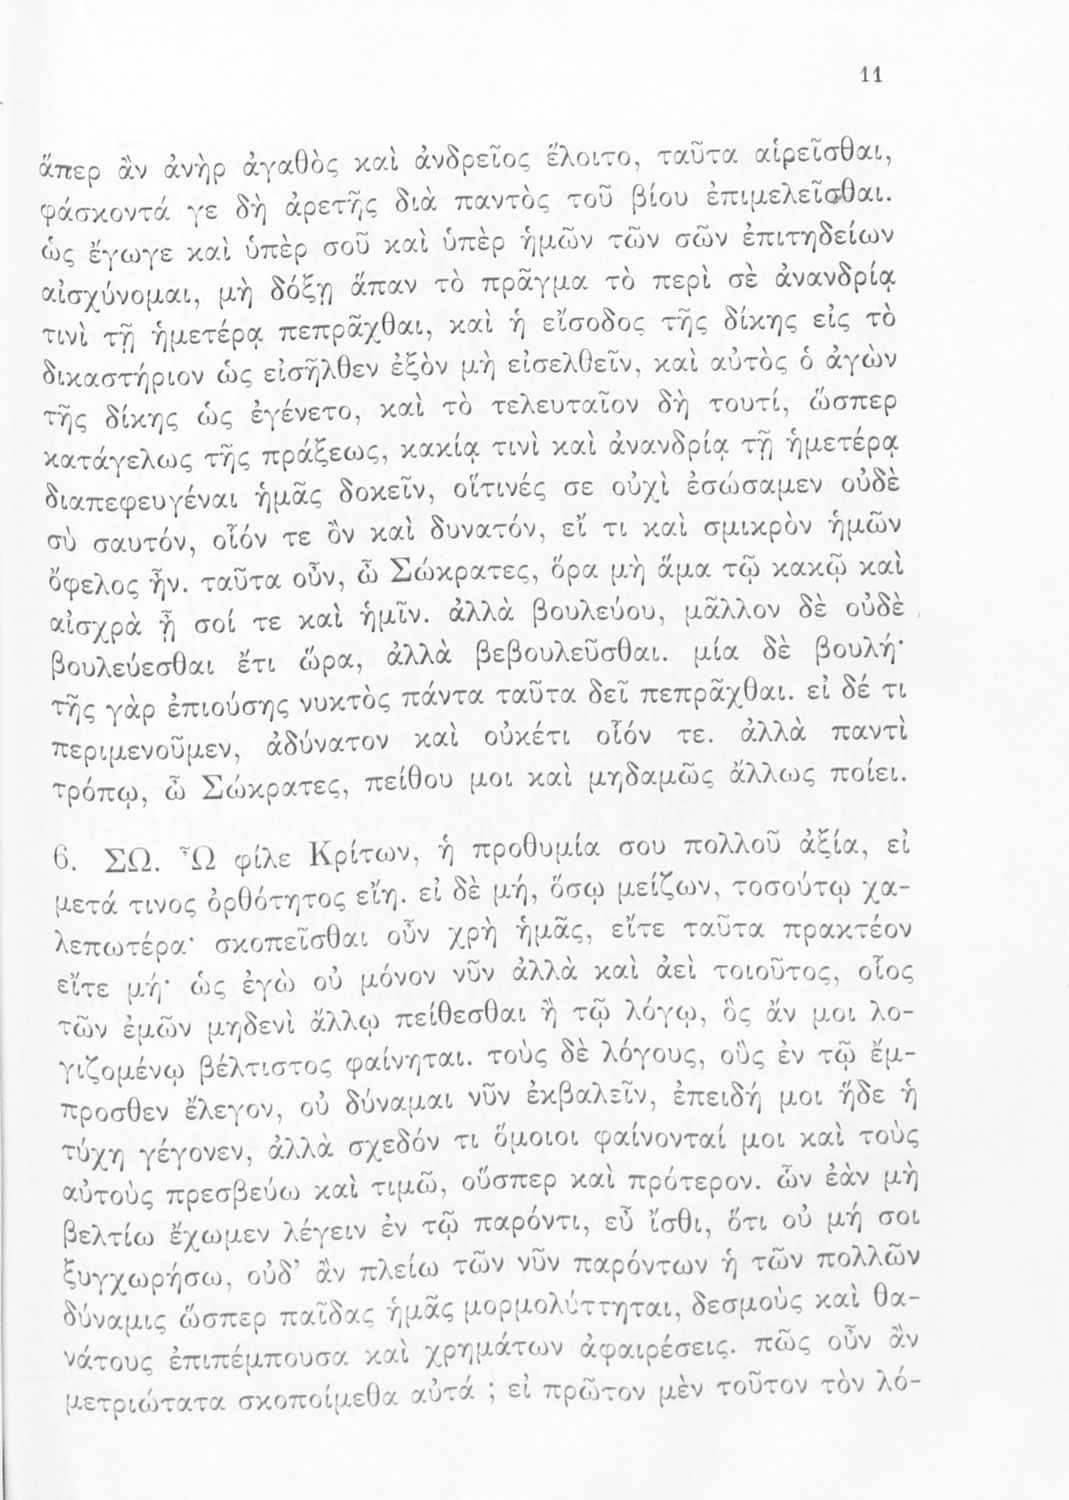 11
ἅπερ ἂν ἀνὴρ ἀγαθὸς καὶ ἀνδρεῖος ἕλοιτο, ταῦτα αἱρεῖσθαι,
φάσκοντά γε δὴ ἀρετῆς διὰ παντὸς τοῦ βίου ἐπιμελεῖσθαι.
ὡς ἔγωγε καὶ ὑπὲρ σοῦ καὶ ὑπὲρ ἡμῶν τῶν σῶν ἐπιτηδείων
αἰσχύνομαι, μὴ δόξῃ ἅπαν τὸ πρᾶγμα τὸ περὶ σὲ ἀνανδρίᾳ
τινὶ τῇ ἡμετέρᾳ πεπρᾶχθαι, καὶ ἡ εἴσοδος τῆς δίκης εἰς τὸ
δικαστήριον ὡς εἰσῆλθεν ἐξὸν μὴ εἰσελθεῖν, καὶ αὐτὸς ὁ ἀγὼν
τῆς δίκης ὡς ἐγένετο, καὶ τὸ τελευταῖον δὴ τουτί, ὥσπερ
κατάγελως τῆς πράξεως, κακίᾳ τινὶ καὶ ἀνανδρίᾳ τῇ ἡμετέρᾳ
διαπεφευγέναι ἡμᾶς δοκεῖν, οἵτινές σε οὐχὶ ἐσώσαμεν οὐδὲ
σὺ σαυτόν, οἷόν τε ὂν καὶ δυνατόν, εἴ τι καὶ σμικρὸν ἡμῶν
ὄφελος ἦν. ταῦτα οὖν, ὦ Σώκρατες, ὅρα μὴ ἅμα τῷ κακῷ καὶ
αἰσχρὰ ᾖ σοί τε καὶ ἡμῖν. ἀλλὰ βουλεύου, μᾶλλον δὲ οὐδὲ
βουλεύεσθαι ἔτι ὥρα, ἀλλὰ βεβουλεῦσθαι. μία δὲ βουλή·
τῆς γὰρ ἐπιούσης νυκτὸς πάντα ταῦτα δεῖ πεπρᾶχθαι. εἰ δέ τι
περιμενοῦμεν, ἀδύνατον καὶ οὐκέτι οἷόν τε. ἀλλὰ παντὶ
τρόπῳ, ὦ Σώκρατες, πείθου μοι καὶ μηδαμῶς ἄλλως ποίει.
6. ΣΩ. Ὦ φίλε Κρίτων, ἡ προθυμία σου πολλοῦ ἀξία, εἰ
μετά τινος ὀρθότητος εἴη. εἰ δὲ μή, ὅσῳ μείζων, τοσούτῳ χα-
λεπωτέρα· σκοπεῖσθαι οὖν χρὴ ἡμᾶς, εἴτε ταῦτα πρακτέον
εἴτε μή· ὡς ἐγὼ οὐ μόνον νῦν ἀλλὰ καὶ ἀεὶ τοιοῦτος, οἷος
τῶν ἐμῶν μηδενὶ ἄλλῳ πείθεσθαι ἢ τῷ λόγῳ, ὃς ἄν μοι λο-
γιζομένῳ βέλτιστος φαίνηται. τοὺς δὲ λόγους, οὓς ἐν τῷ ἔμ-
προσθεν ἔλεγον, οὐ δύναμαι νῦν ἐκβαλεῖν, ἐπειδή μοι ἥδε ἡ
τύχη γέγονεν, ἀλλὰ σχεδόν τι ὅμοιοι φαίνονταί μοι καὶ τοὺς
αὐτοὺς πρεσβεύω καὶ τιμῶ, οὕσπερ καὶ πρότερον. ὧν ἐὰν μὴ
βελτίω ἔχωμεν λέγειν ἐν τῷ παρόντι, εὖ ἴσθι, ὅτι οὐ μή σοι
ξυγχωρήσω, οὐδ’ ἂν πλείω τῶν νῦν παρόντων ἡ τῶν πολλῶν
δύναμις ὥσπερ παῖδας ἡμᾶς μορμολύττηται, δεσμοὺς καὶ θα-
νάτους ἐπιπέμπουσα καὶ χρημάτων ἀφαιρέσεις. πῶς οὖν ἂν
μετριώτατα σκοποίμεθα αὐτά ; εἰ πρῶτον μὲν τοῦτον τὸν λό-